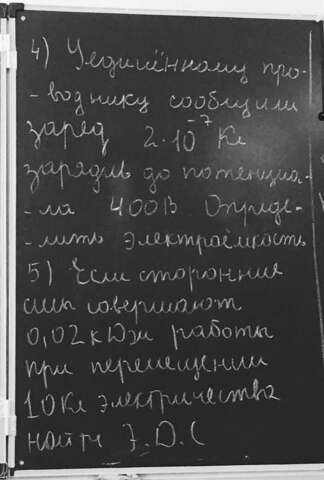 4) Уединённому про-
-воднику сообщили
заряд 2·10⁻⁷ Кл
зарядив до потенциа-
-ла 400В Опреде-
-лить электроёмкость
5) Если сторонние
силы совершают
0,02кДж работы
при перемещении
10Кл электричества
найти Э.Д.С